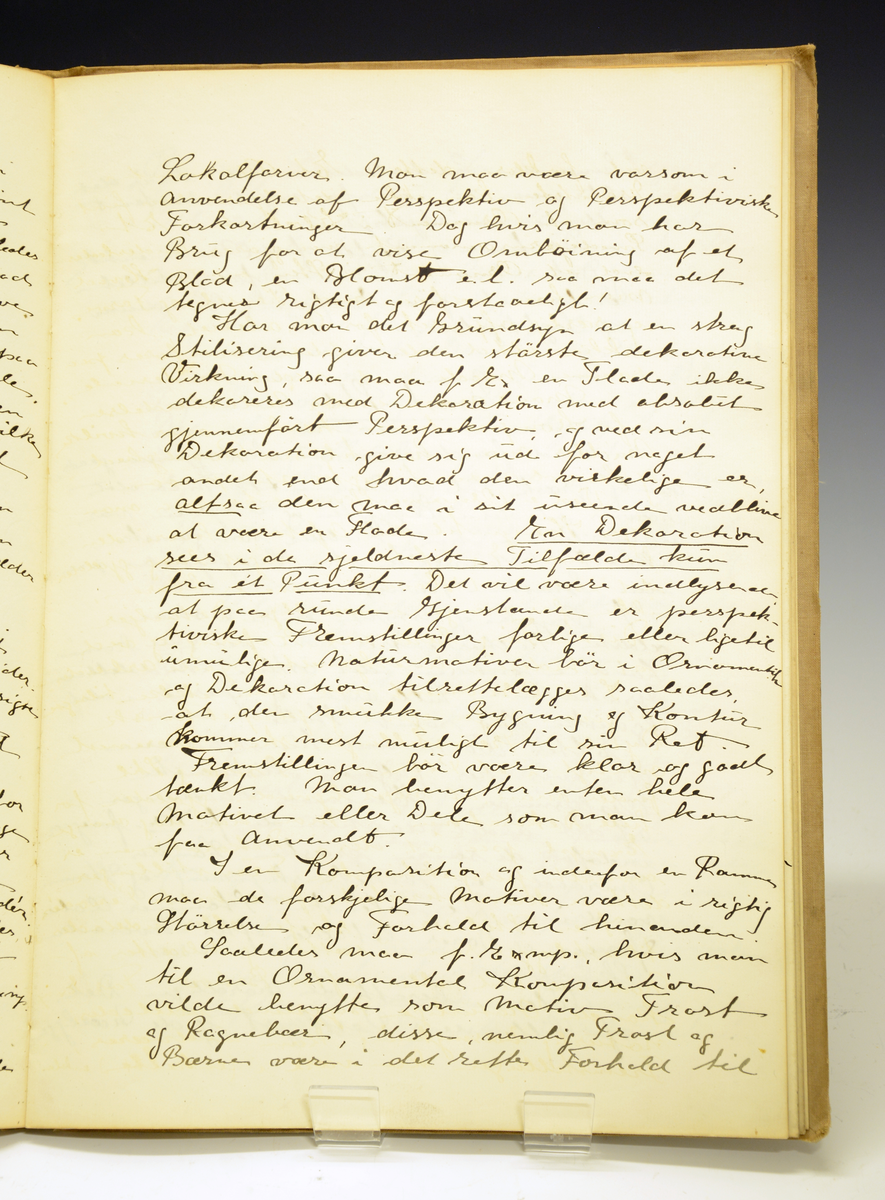 Lokalfarver. Man maa være varsom i
Anvendelse af Perspektiv og Perspektiviske
Forkortninger. Dog hvis man har
Brug for at vise Ombøining af et
Blad, en Blomst e.l. saa maa det
tegnes rigtigt og forstaaeligt!
Har man det Grundsyn at en streng
Stilisering giver den største dekorative
Virkning, saa maa f. Ex. en Flade ikke
dekoreres med Dekoration med absolut
gjennemført Perspektiv, og ved sin
Dekoration give sig ud for noget
andet end hvad den virkelige er,
altsaa den maa i sit useende vedblive
at være en Flade. En Dekoration
sees i de sjeldneste Tilfælde kun
fra ét Punkt. Det vil være indlysende
at paa runde Gjenstande er perspek-
tiviske Fremstillinger farlige eller ligetil
umulige. Naturmotiver bör i Ornamentik
og Dekoration tilrettelægges saaledes,
at den smukke Bygning og Kontur
kommer mest muligt til sin Ret.
Fremstillingen bör være klar og godt
tænkt. Man benytter enten hele
Motivet eller Dele som man kan
faa Anvendt.
I en Komposition og indenfor en Ramme
maa de forskjelige Motiver være i rigtig
Störrelse og Forhold til hinanden.
Saaledes maa f. Exmp., hvis man
til en Ornamental Komposition
vilde benytte som Motiv Trost
og Rognebær, disse, nemlig Trost og
Bærne være i det rette Forhold til